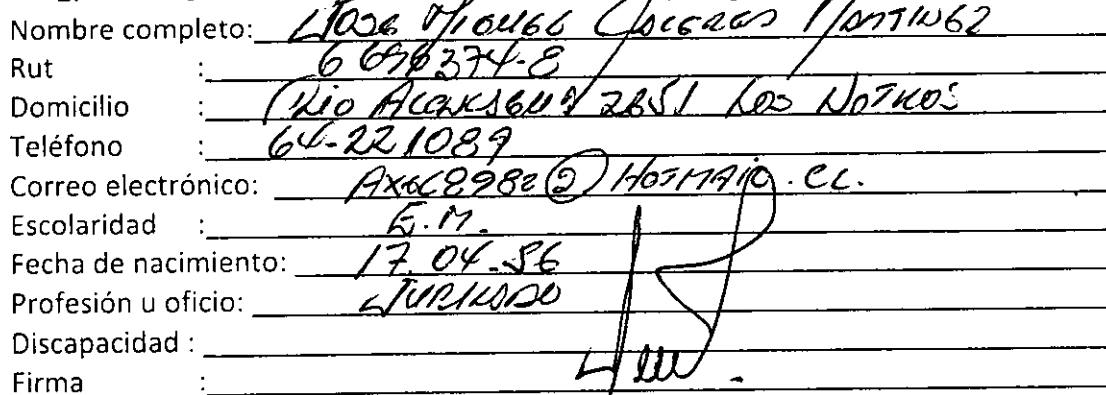 Nombre completo: Jose Miguel Caceres Martinez
Rut :
Domicilio : Rio 2851 Los Notros
Teléfono : 64-221089
Correo electrónico:
Escolaridad : E.M.
Fecha de nacimiento: 17.04.56
Profesión u oficio: Jubilado
Discapacidad :
Firma :